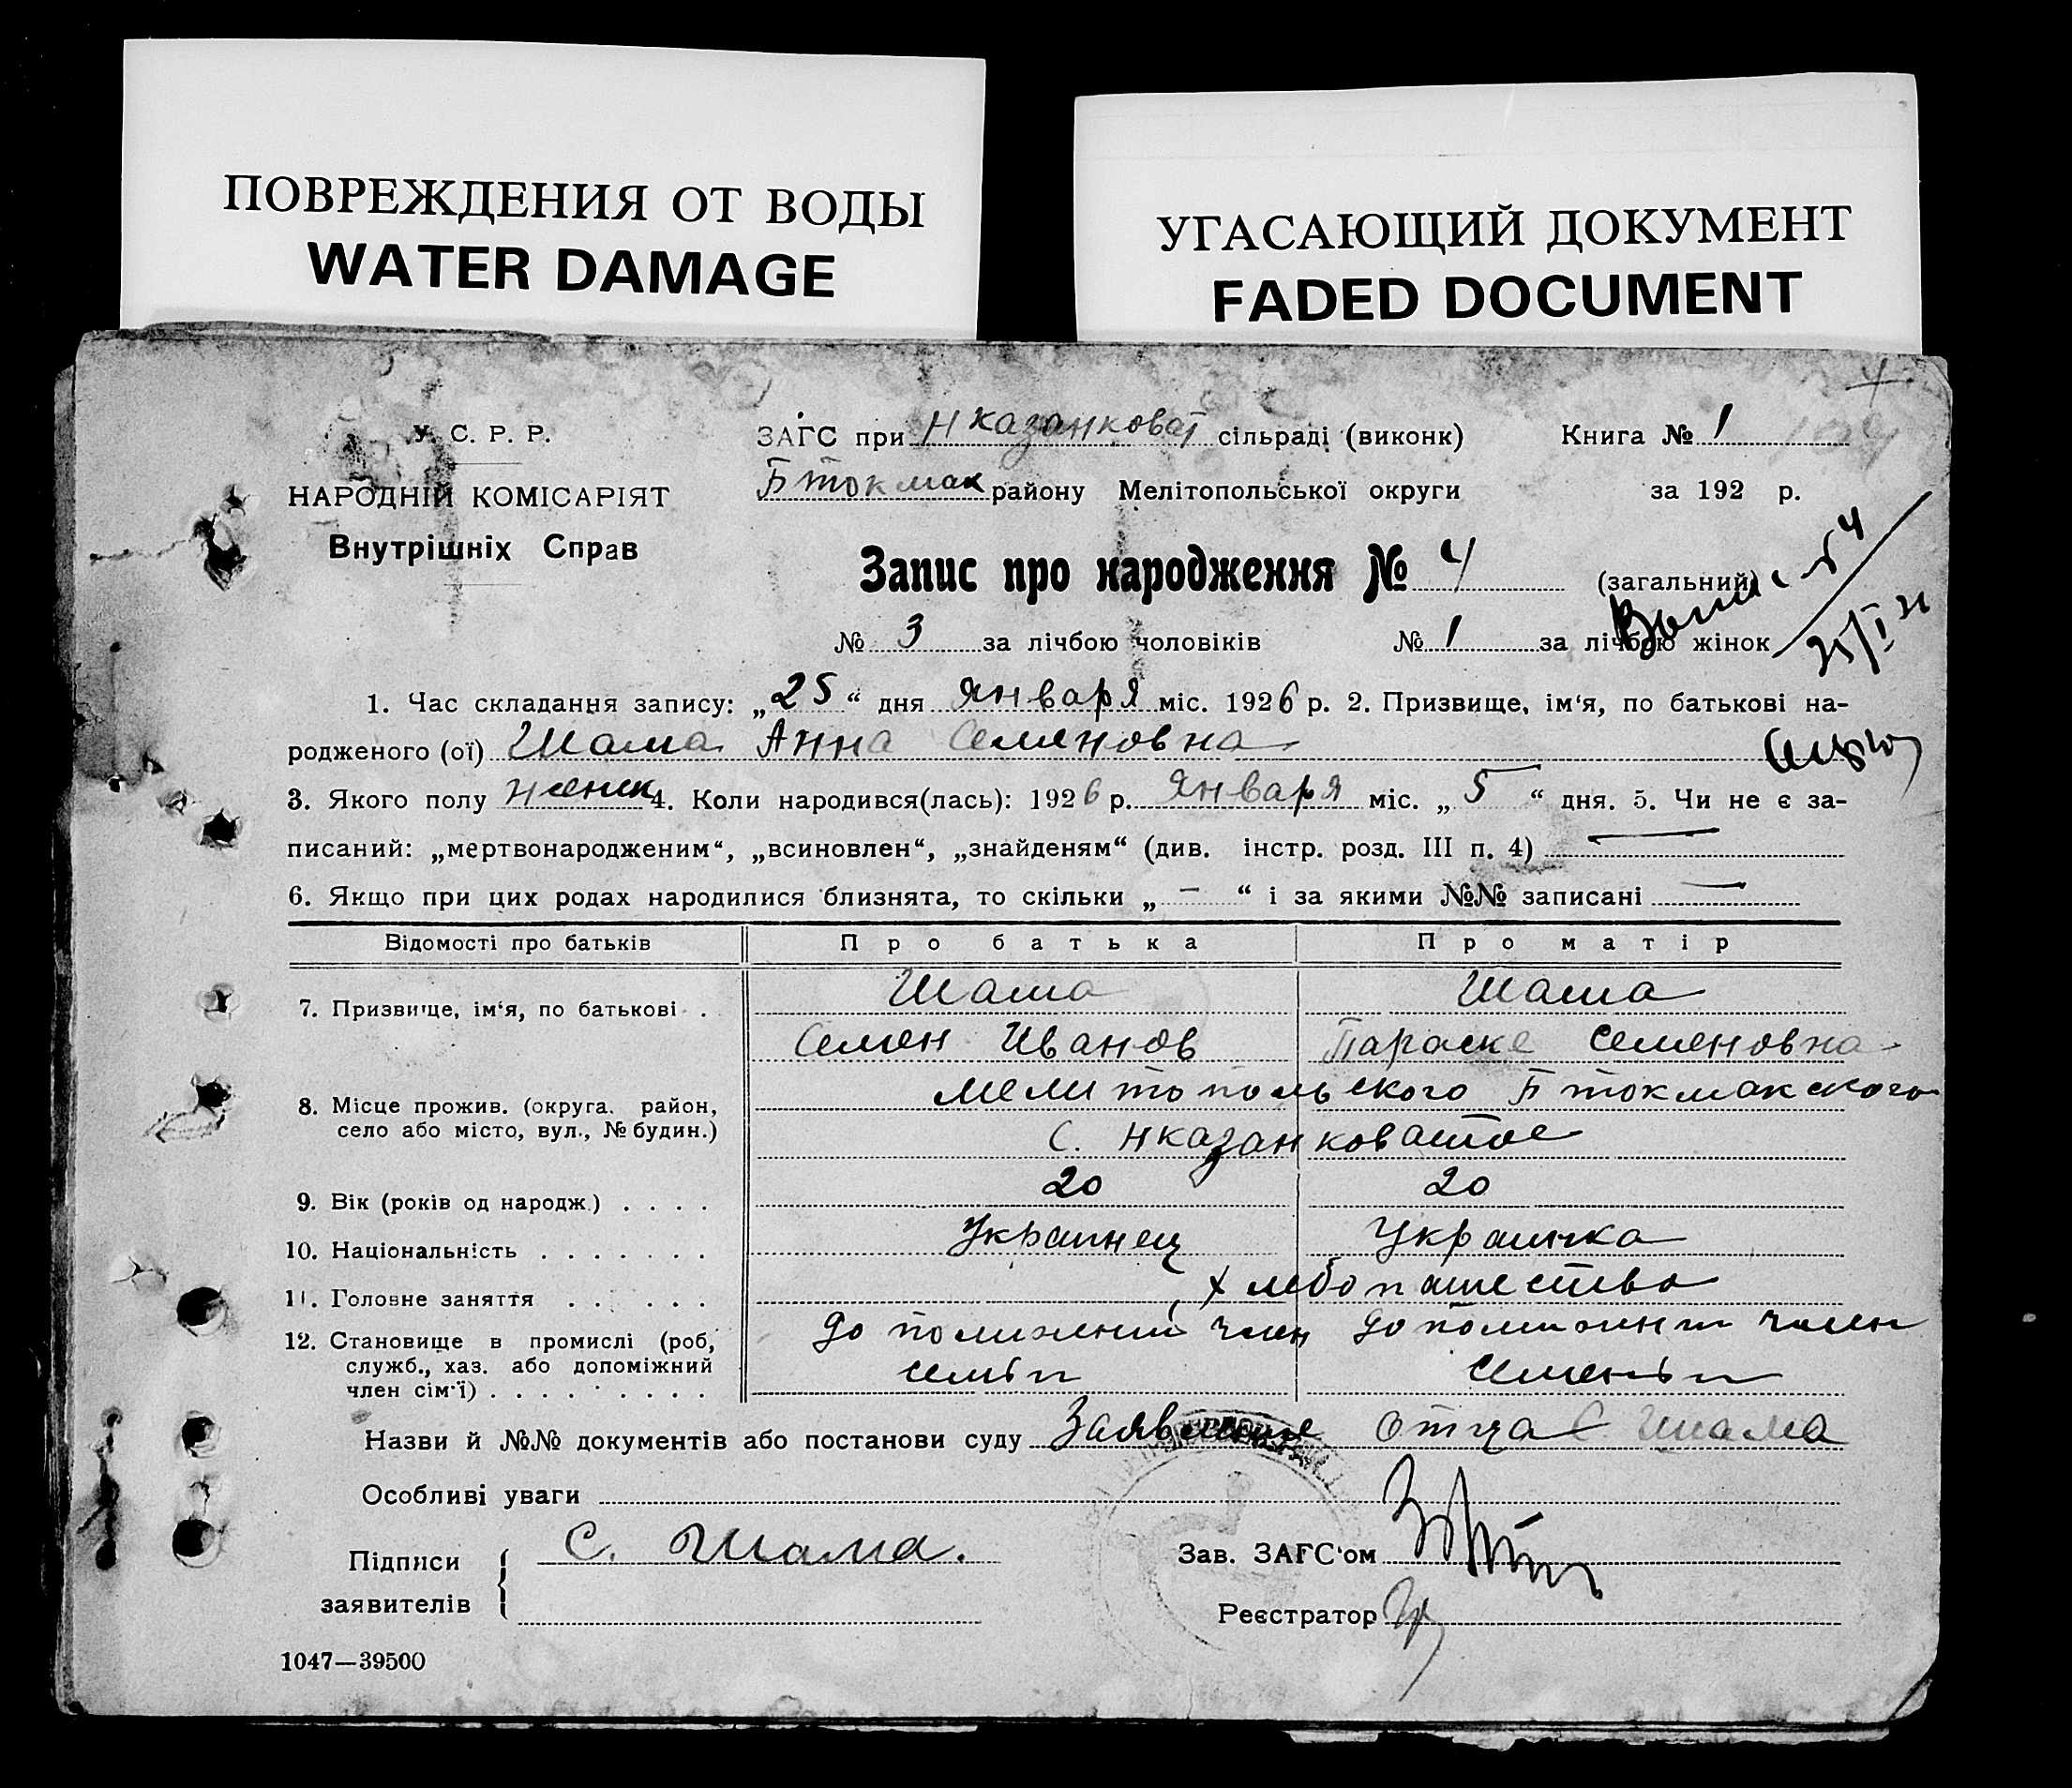 ПОВРЕЖДЕНИЯ ОТ ВОДЫ
WATER DAMAGE
УГАСАЮЩИЙ ДОКУМЕНТ
FADED DOCUMENT
У. С. Р. Р.
НАРОДНІЙ КОМІСАРІЯТ
Внутрішніх Справ
ЗАГС при Нказанковат сільраді (виконк)
Книга № 1
Бтокмак району Мелітопольської округи
за 192 р.
Запис про народження № 4 (загальний)
№ 3 за лічбою чоловіків № 1 за лічбою жінок
1. Час складання запису: „25“ дня Января міс. 1926 р. 2. Призвище, ім‘я, по батькові на-
родженого (ої) Шама Анна Семеновна
3. Якого полу женск 4. Коли народився(лась): 1926 р. Января міс. „5“ дня. 5. Чи не є за-
писаний: „мертвонародженим“, „всиновлен“, „знайденям“ (див. інстр. розд. III п. 4) —
6. Якщо при цих родах народилися близнята, то скільки „—“ і за якими №№ записані —
Відомості про батьків Про батька Про матір
7. Призвище, ім‘я, по батькові . Шама Шама
Семен Иванов Параске Семеновна
8. Місце прожив. (округа. район, Мелитопольского Бтокмакского
село або місто, вул., № будин.) с. Нказанковатое
9. Вік (років од народж.) . . . . 20 20
10. Національність . . . . . . . Украинец Украинка
11. Головне заняття . . . . . . Хлебопашество
12. Становище в промислі (роб, допоможний член допоможний член
служб., хаз. або допоміжний семьи семеньи
член сім‘ї) . . . . . . . . .
Назви й №№ документів або постанови суду Заявление отца С Шама
Особливі уваги
Підписи
заявителів
С. Шама.
Зав. ЗАГС‘ом
Реєстратор
1047—39500